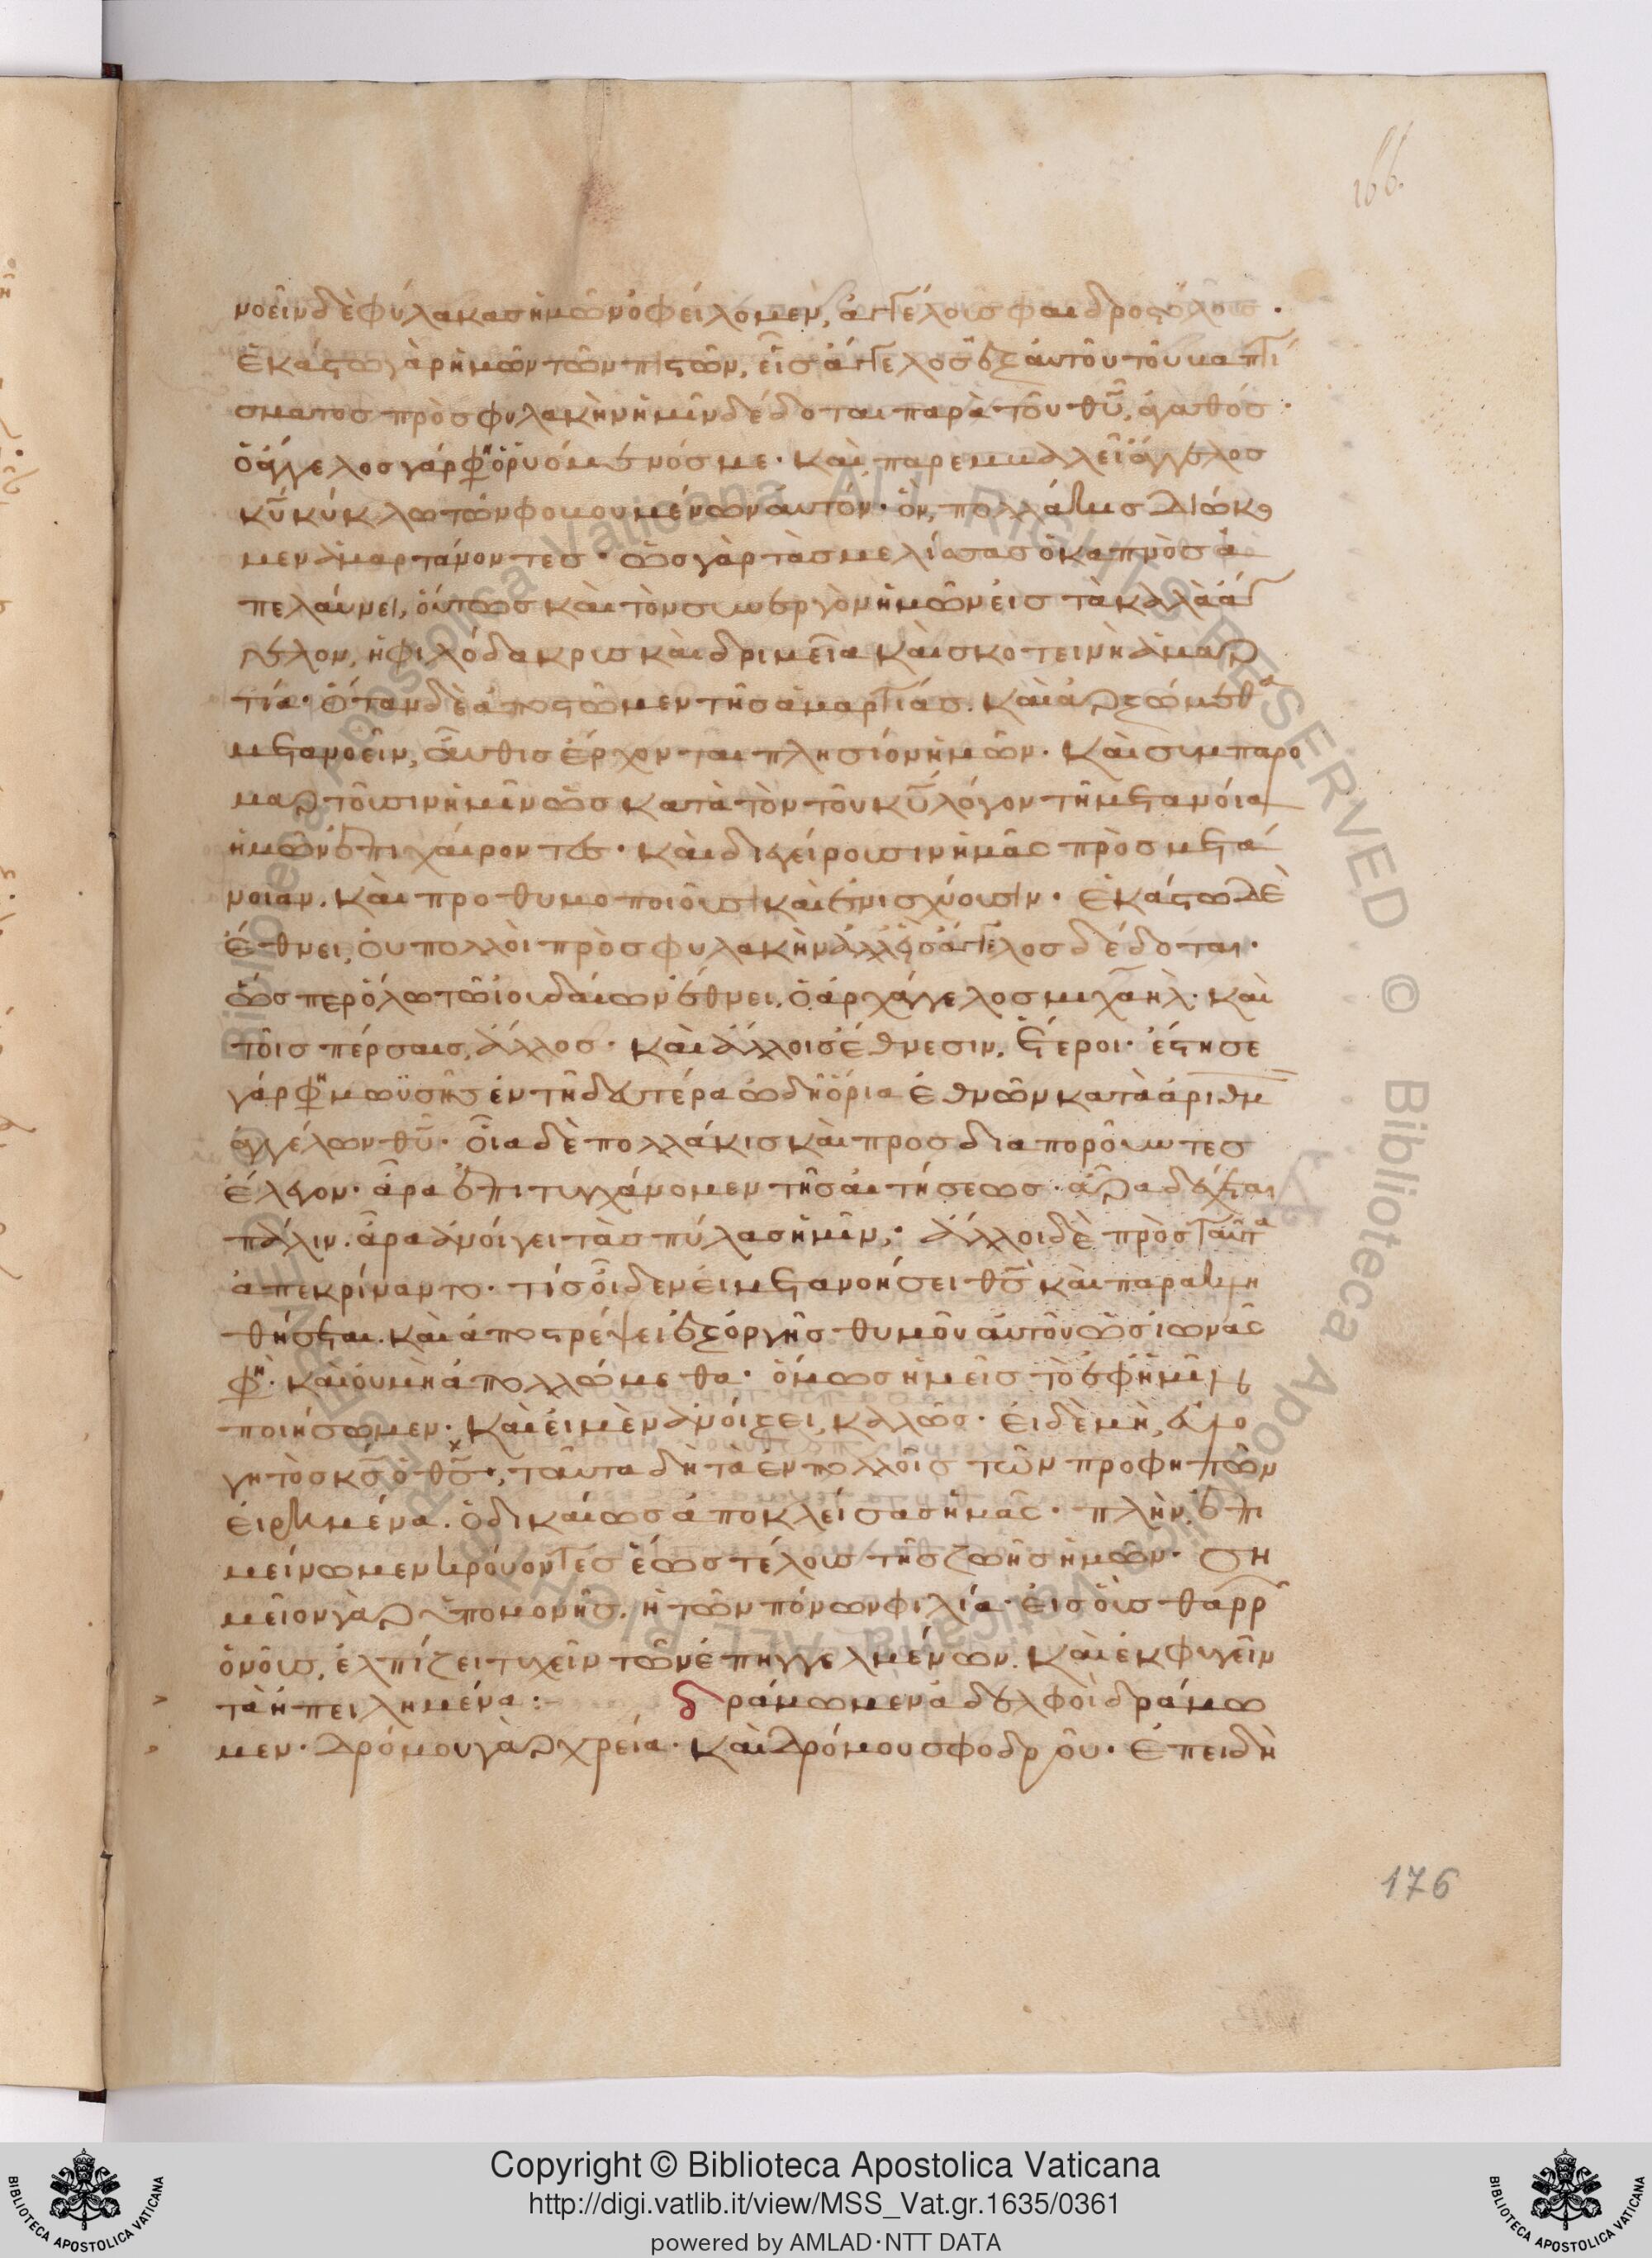 166.
νοεῖν δὲ φύλακας ἡμῶν ὀφείλομεν, ἀγγέλους φαιδροὺς ὅλους·
ἑκάστω γὰρ ἡμῶν τῶν πιστῶν, εἷς ἄγγελος ἐξ αὐτοῦ τοῦ βαπτί
σματος πρὸς φυλακὴν ἡμῖν δέδοται παρὰ τοῦ θῦ, ἀγαθός·
ὁ ἄγγελος γάρ φη ὁ ῥυόμενός με· καὶ παρεμβαλεῖ ἄγγελος
κῦ κύκλω τῶν φοβουμένων αὐτόν· ὃν, πολλάκις διώκο
μεν ἁμαρτάνοντες· ὡς γὰρ τὰς μελίσσας ὁ καπνὸς ἀ
πελαύνει, οὕτως καὶ τὸν συνεργὸν ἡμῶν εἰς τὰ καλὰ ἄγ
γελον, ἡ φιλόδακρυς καὶ δριμεῖα καὶ σκοτεινὴ ἁμαρ
τία· ὅταν δὲ ἀποστῶμεν τῆς ἁμαρτίας. καὶ ἀρξώμεθα
μετανοεῖν, αὖθις ἔρχονται πλησίον ἡμῶν· καὶ συμπαρο
μαρτοῦσιν ἡμῖν ὡς κατὰ τὸν τοῦ κῦ λόγον τῆ μετανοία
ἡμῶν ἐπιχαίροντες· καὶ διεγείρουσιν ἡμᾶς πρὸς μετά
νοιαν. καὶ προθυμοποιοῦσι καὶ ἐνισχύουσιν· ἑκάστω δὲ
ἔθνει, οὐ πολλοὶ πρὸς φυλακὴν ἀλλ' εἷς ἄγγελος δέδοται·
ὥσπερ ὅλω τῶ ἰουδαίων ἔθνει. ὁ ἀρχάγγελος μιχαὴλ· καὶ
τοῖς πέρσαις, ἄλλος· καὶ ἄλλοις ἔθνεσιν, ἕτεροι· ἔστησε
γάρ φη μωϋσῆς ἐν τῆ δευτέρα ὠδῆ ὅρια ἐθνῶν κατὰ ἀριθμ
ἀγγέλων θῦ· οἷα δὲ πολλάκις καὶ προσδιαποροῦντες
ἔλεγον· ἆρα ἐπιτυγχάνομεν τῆς αἰτήσεως· ἆρα δέχεται
πάλιν. ἆρα ἀνοίγει τὰς πύλας ἡμῖν,· ἄλλοι δὲ πρὸς ταῦτα
ἀπεκρίναντο· τίς οἶδεν εἰ μετανοήσει θς καὶ παρακλη
θήσεται. καὶ ἀποστρέψει ἐξ ὀργῆς θυμοῦ αὐτοῦ ὡς ἰωνᾶς
φη· καὶ οὐ μὴ ἀπολλώμεθα· ὅμως ἡμεῖς τὸ ἐφ' ἡμῖν
ποιήσωμεν· καὶ εἰ μὲν ἀνοίξει, καλῶς· εἰ δὲ μὴ, εὐλο
γητὸς κς ὁ θς·, ταῦτα δὴ τὰ ἐν πολλοῖς τῶν προφητῶν
εἰρημένα. ὁ δικαίως ἀποκλείσας ἡμᾶς· πλὴν, ἐπι
μείνωμεν κρούοντες ἕως τέλους τῆς ζωῆς ἡμῶν· ση
μεῖον γὰρ ὑπομονῆς. ἡ τῶν πόνων φιλία· εἰς οὓς θαρρ
ὁ νοῦς, ἐλπίζει τυχεῖν τῶν ἐπηγγελμένων. καὶ ἐκφυγεῖν
τὰ ἠπειλημένα:- δράμωμεν ἀδελφοὶ δράμω
μεν· δρόμου γὰρ χρεία· καὶ δρόμου σφοδροῦ· ἐπειδὴ
176
Copyright © Biblioteca Apostolica Vaticana
http://digi.vatlib.it/view/MSS_Vat.gr.1635/0361
powered by AMLAD·NTT DATA